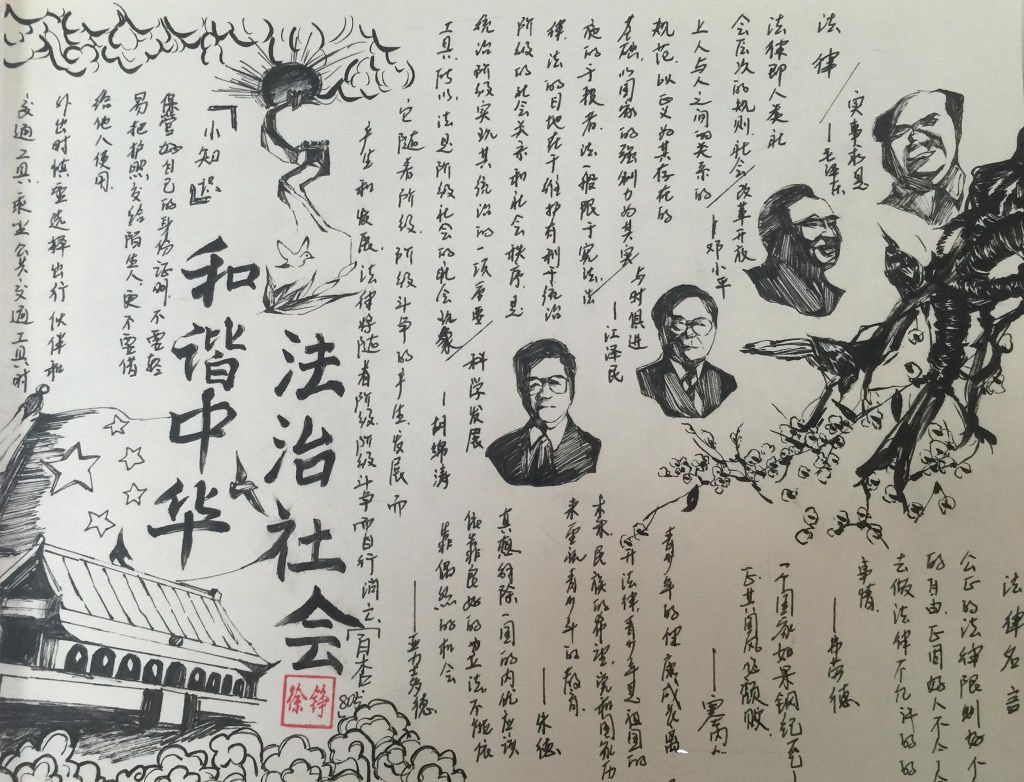 法律
法律即人类社
会层次的规则,社会
上人与人之间的关系的
规范,以正义为其存在的
基础,以国家的强制力为其实
施的手段者.法一般限于宪法,法
律.法的目地在于维护有利于统治
阶级的社会关系和社会秩序.是
统治阶级实现其统治的一项重要
工具.所以,法是阶级社会的社会现象
它随着阶级,阶级斗争的产生,发展而
产生和发展,法律将随着阶级,阶级斗争而自行消亡.
实事求是
—毛泽东
改革开放
—邓小平
与时俱进
—江泽民
科学发展
—胡锦涛
法律名言
公正的法律限制好个
的自由.正因好人不会
去做法律不允许的
事情.
——弗劳德
一个国家如果钢纪不
正其国风必颓败
——塞内加
青少年的健康成长离
不开法律,青少年是祖国的
未来民族的希望,党和国家历
来重视青少年的教育.
——朱德
真想解除一国的内忧应该
依靠良好的立法不能依
靠偶然的机会
——亚里多德
法治社会
和谐中华
「小知识」
保管好自己的身份证明,不要轻
易把护照交给陌生人,更不要借
给他人使用.
外出时慎重选择出行伙伴和
交通工具,乘坐公共交通工具时
徐铮
805